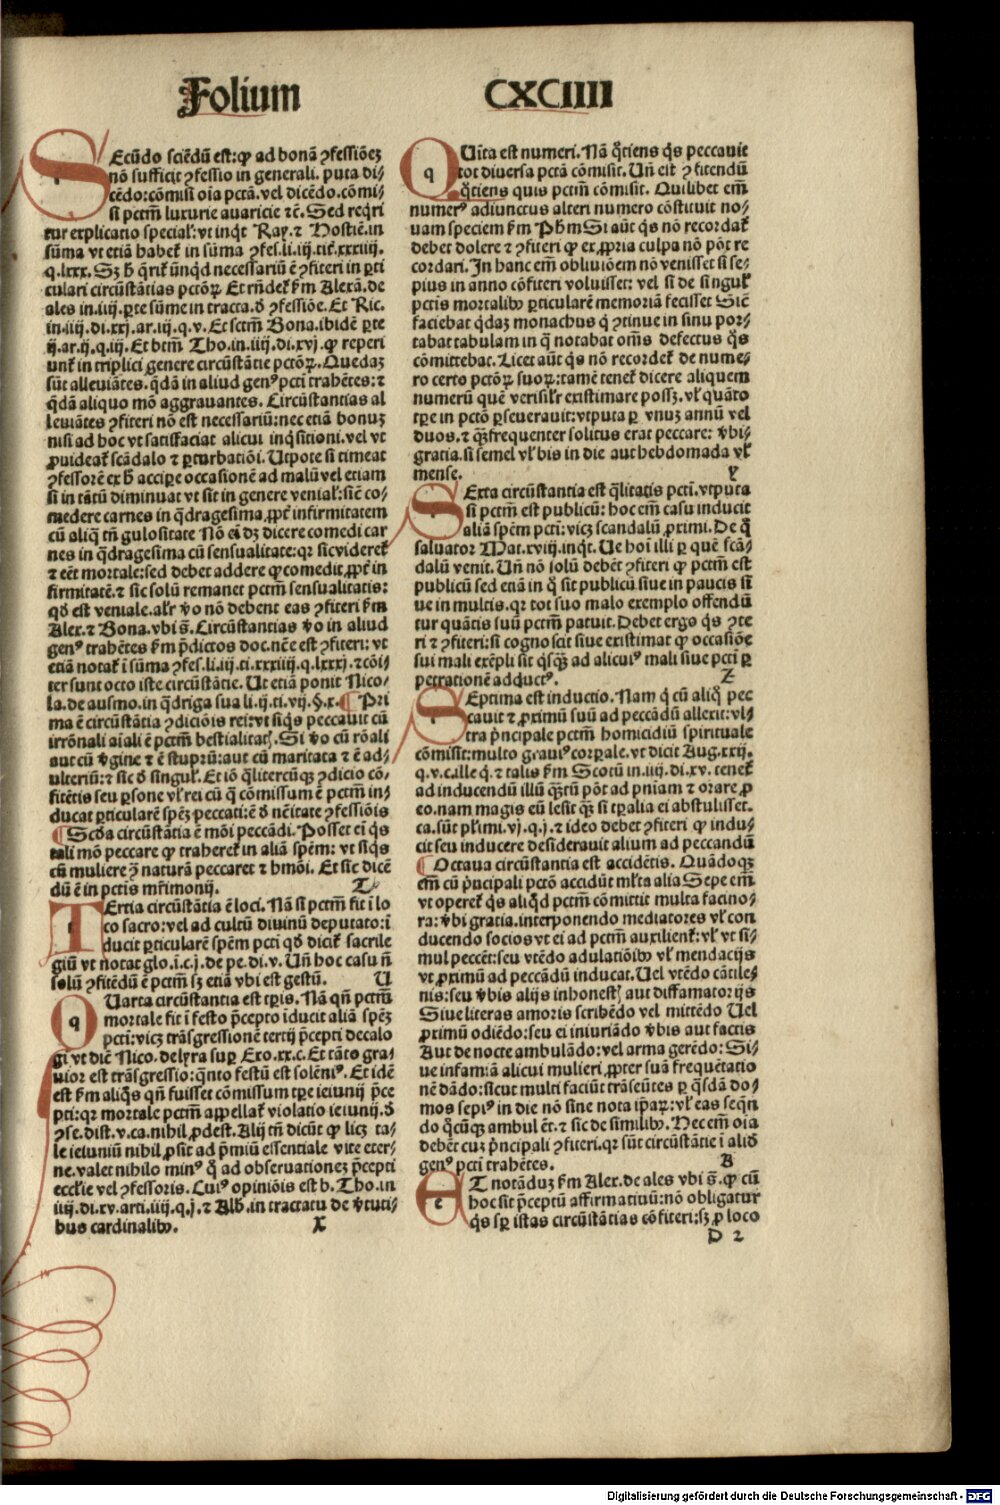 Folium CXCIIII
SEcũdo sciẽdũ est: ꝙ ad bonã ꝯfessiõeꝫ
nõ sufficit ꝯfessio in generali. puta di-
cẽdo: cõmisi oĩa pctã. vel dicẽdo. cõmi-
si pctm̃ luxurie avaricie ⁊c̃. Sed reqͥri
tur explicatio special': vt inqͥt Ray. ⁊ Hostiẽ. in
sũma vt etiã habet͛ in sũma ꝯfes. li. iij. tit͛. xxxiiij.
q. lxxx. Sꝫ h̃ qͥrit͛ ũnqͥd necessariũ ẽ ꝯfiteri in ꝑti
culari circũstãtias pctõꝝ Et rñdet͛ ẜm Alexã. de
ales in. iiij. ꝑte sũme in tracta. ð ꝯfessiõe. Et Ric.
in. iiij. di. xxj. ar. iij. q. v. Et sctm̃ Bona. ibidẽ ꝑte
ij. ar. ij. q. iij. Et btm̃ Tho. in. iiij. di. xvj. ꝙ reperi
unt͛ in triplici genere circũstãtie pctõꝝ. Quedaꝫ
sũt alleuiãtes. qͥdã in aliud genꝰ pcti trahẽtes: ⁊
qͥdã aliquo mõ aggrauantes. Circũstantias al
leuiãtes ꝯfiteri nõ est necessariũ: nec etiã bonuꝫ
nisi ad hoc vt satisfaciat alicui inqͥsitioni. vel vt
ꝓuideat͛ scãdalo ⁊ ꝑturbatiõi. Utpote si timeat
ꝯfessorẽ ex h̃ accipe occasionẽ ad malũ vel etiam
si in tãtũ diminuat vt sit in genere venial': sic̃ co-
medere carnes in qͣdragesima. ꝓpt͛ infirmitatem
cũ aliqͣ tñ gulositate Nõ eĩ dꝫ dicere comedi car
nes in qͣdragesima cũ sensualitate: qꝛ sic videret͛
⁊ eẽt mortale: sed debet addere ꝙ comedit. ꝓpt͛ in
firmitatẽ. ⁊ sic solũ remanet pctm̃ sensualitatis:
qð est veniale. al'r ṽo nõ debent eas ꝯfiteri ẜm
Alex. ⁊ Bona. vbi s̃. Circũstantias ṽo in aliud
genꝰ trahẽtes ẜm p̃dictos doc. nc̃e est ꝯfiteri: vt
etiã notat͛ ĩ sũma ꝯfes. li. iij. ti. xxxiiij. q. lxxxj. ⁊ cõi-
ter sunt octo iste circũstãtie. Ut etiã ponit Nico-
la. de ausmo. in qͣdriga sua li. ij. ti. vij. §. x. ¶ Pri
ma ẽ circũstãtia ꝯdiciõis rei: vt siqͥs peccauit cũ
irrõnali aĩali ẽ pctm̃ bestialitat͛. Si ṽo cũ rõali
aut cũ ṽgine ⁊ ẽ stuprũ: aut cũ maritata ⁊ ẽ ad-
ulteriũ: ⁊ sic ð singul'. Et iõ qͣlitercũqꝫ ꝯdicio cõ-
fitẽtis seu ꝑsone vl' rei cũ qͣ cõmissum ẽ pctm̃ in-
ducat ꝑticularẽ sp̃eꝫ peccati: ẽ ð nc̃itate ꝯfessiõis
¶ Scða circũstãtia ẽ mõi peccãdi. Posset eĩ qͥs
tali mõ peccare ꝙ traheret͛ in aliã sp̃em: vt siqͥs
cũ muliere ꝯͣ naturã peccaret ⁊ hmõi. Et sic̃ dicẽ
dũ ẽ in pctis mr̃imonij. T
TErtia circũstãtia ẽ loci. Nã si pctm̃ fit ĩ lo
co sacro: vel ad cultũ diuinũ deputato: ĩ
ducit ꝑticularẽ sp̃em pcti qð dicit͛ sacrile
giũ vt notat glo. ĩ. c. j. de pe. di. v. Uñ hoc casu nõ
solũ ꝯfitẽdũ ẽ pctm̃ sꝫ etiã vbi est gestũ. U
QUarta circũstantia est tꝑis. Nã qñ pctm̃
mortale fit ĩ festo p̃cepto ĩducit aliã sp̃eꝫ
pcti: vicꝫ trãsgressionẽ tertij p̃cepti decalo
gi vt dic̃ Nico. de lyra suꝑ Exo. xx. c. Et tãto gra-
uior est trãsgressio: qͣnto festũ est solẽniꝰ. Et idẽ
est ẜm aliqͦs qñ fuisset cõmissum tꝑe ieiunij p̃ce
pti: qꝛ mortale pctm̃ appellat͛ violatio ieiunij. ð
ꝯse. dist. v. ca. nihil ꝓdest. Alij tñ dicũt ꝙ licꝫ ta-
le ieiuniũ nihil ꝓsit ad p̃miũ essentiale vite eter-
ne. valet nihilo minꝰ qͦ ad obseruationeꝫ p̃cepti
eccl'ie vel ꝯfessoris. Cuiꝰ opiniõis est b. Tho. in
iiij. di. xv. arti. iiij. q. j. ⁊ Alb. in tractatu de ṽtuti-
bus cardinalibꝰ. X
QUĩta est numeri. Nã qͦtiens qͥs peccauit
tot diuersa pctã cõmisit. Uñ eit ꝯfitendũ
qͦtiens quis pctm̃ cõmisit. Quilibet em̃
numerꝰ adiunctus alteri numero cõstituit no-
uam speciem ẜm Ph̃m Si aũt qͥs nõ recordat͛
debet dolere ⁊ ꝯfiteri ꝙ ex ꝓpria culpa nõ põt re
cordari. In hanc em̃ obliuiõem nõ venisset si se-
pius in anno cõfiteri voluisset: vel si de singul'
pctis mortalibꝰ ꝑticularẽ memoriã fecisset Sic̃
faciebat qͥdaꝫ monachus qͥ ꝯtinue in sinu por-
tabat tabulam in qͣ notabat oẽs defectus qͦs
cõmittebat. Licet aũt qͥs nõ recordet͛ de nume-
ro certo pctõꝝ suoꝝ: tamẽ tenet͛ dicere aliquem
numerũ quẽ verisil'r existimare possꝫ. vl' quãto
tꝑe in pctõ ꝑseuerauit: vtputa ꝑ vnuꝫ annũ vel
duos. ⁊ qͣꝫ frequenter solitus erat peccare: ṽbi-
gratia. si semel vl' bis in die aut hebdomada vl'
mense. Y
SExta circũstantia est qͣlitatis pcti. vtputa
si pctm̃ est publicũ: hoc em̃ casu inducit
aliã sp̃em pcti: vicꝫ scandalũ ꝓximi. De qͦ
saluator Mat. xviij. inqͥt. Ue hoĩ illi ꝑ quẽ scã-
dalũ venit. Uñ nõ solũ debẽt ꝯfiteri ꝙ pctm̃ est
publicũ sed etiã in qͦ sit publicũ siue in paucis si
ue in multis. qꝛ tot suo malo exemplo offendũ
tur quãtis suũ pctm̃ patuit. Debet ergo qͥs ꝯte
ri ⁊ ꝯfiteri: si cognoscit siue existimat ꝙ occasiõe
sui mali exẽpli sit qͥsqͣꝫ ad alicuiꝰ mali siue pcti ꝑ
petrationẽ adductꝰ. Z
SEptima est inductio. Nam qͥ cũ aliqͦ pec
cauit ⁊ ꝓximũ suũ ad peccãdũ allexit: vl-
tra p̃ncipale pctm̃ homicidiũ spirituale
cõmisit: multo grauiꝰ corꝑale. vt dicit Aug. xxij.
q. v. c. ille qͥ. ⁊ talis ẜm Scotũ in. iiij. di. xv. tenet͛
ad inducendũ illũ qͣꝫtũ põt ad pniam ⁊ orare ꝓ
eo. nam magis eũ lesit qͣꝫ si tꝑalia ei abstulisset.
ca. sũt pl'imi. vj. q. j. ⁊ ideo debet ꝯfiteri ꝙ indu-
cit seu inducere desiderauit alium ad peccandũ
¶ Octaua circũstantia est accidẽtis. Quãdoqꝫ
em̃ cũ p̃ncipali pctõ accidũt ml'ta alia Sepe em̃
vt operet͛ qͥs aliqͥd pctm̃ cõmittit multa facino-
ra: ṽbi gratia. interponendo mediatores vl' con
ducendo socios vt ei ad pctm̃ auxilient͛: vl' vt si-
mul peccẽt: seu vtẽdo adulatiõibꝰ vl' mendacijs
vt ꝓximũ ad peccãdũ inducat. Uel vtẽdo cãtile-
nis: seu ṽbis alijs inhonest͛ aut diffamatorijs
Siue literas amoris scribẽdo vel mittẽdo Uel
ꝓximũ odiẽdo: seu ei iniuriãdo ṽbis aut factis
Aut de nocte ambulãdo: vel arma gerẽdo: Si-
ue infamiã alicui mulieri ꝓpter suã frequẽtatio
nẽ dãdo: sicut multi faciũt trãseũtes ꝑ qͣsdã do-
mos sepiꝰ in die nõ sine nota ip̃aꝝ: vl' eas seqñ
do qͦcũqꝫ ambulẽt. ⁊ sic de similibꝰ. Hec em̃ oĩa
debẽt cuꝫ p̃ncipali ꝯfiteri. qꝛ sũt circũstãtie ĩ alið
genꝰ pcti trahẽtes. A
ET notãduꝫ ẜm Alex. de ales vbi s̃. ꝙ cũ
hoc sit p̃ceptũ affirmatiuũ: nõ obligatur
qͥs sꝑ istas circũstãtias cõfiteri: sꝫ ꝓ loco
D 2
Digitalisierung gefördert durch die Deutsche Forschungsgemeinschaft - DFG